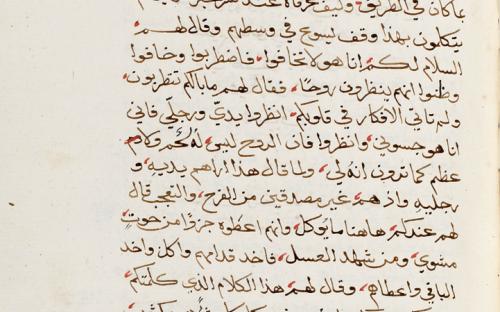 بماكان في الطريق وكيف عرفاه عند
يتكلون بهذا وقف يسوع في وسطهم وقال لهم
السلام لكم انا هو لا تخافوا فاضطربوا وخافوا
وظنوا انهم ينظرون روحا فقال لهم ما بالكم تنظربون
ولم تاتي الافكار في قلوبكم انظروا يديّ ورجليّ فاني
انا هو جسوني وانظروا فان الروح ليس له لحم ولا دم
عظم كما ترون انه لي ولما قال هذا اراهم يديه و
رجليه واذ هم غير مصدقين من الفرح والتعجب قال
لهم عندكم هاهنا ما يوكل وانهم اعطوه جزوا من حوت
مشوي ومن شهد العسل فاخد قدامهم واكل واخد
الباقي واعطاهم وقال لهم هذا الكلام الذي كلمتكم